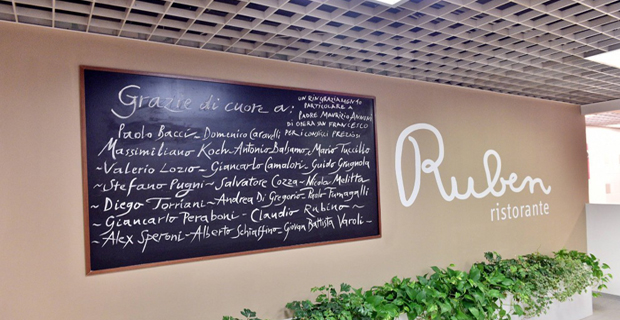 Grazie di cuore a:
UN RINGRAZIAMENTO
PARTICOLARE A
PADRE MAURIZIO
DI OPERA SAN FRANCESCO
PER I CONSIGLI PREZIOSI
Paolo Bacci - Domenico Caravelli
Massimiliano Koch - Antonio Balsamo - Mario Tuccillo
~ Valerio Lozio - Giancarlo Camalori - Guido Grugnola
~ Stefano Pugni - Salvatore Cozza - Nicola Melitta
~ Diego Torriani - Andrea Di Gregorio - Paolo Fumagalli
~ Giancarlo Peraboni - Claudio Rubino ~
~ Alex Speroni - Alberto Schiaffino - Giovan Battista Varoli -
Ruben
ristorante